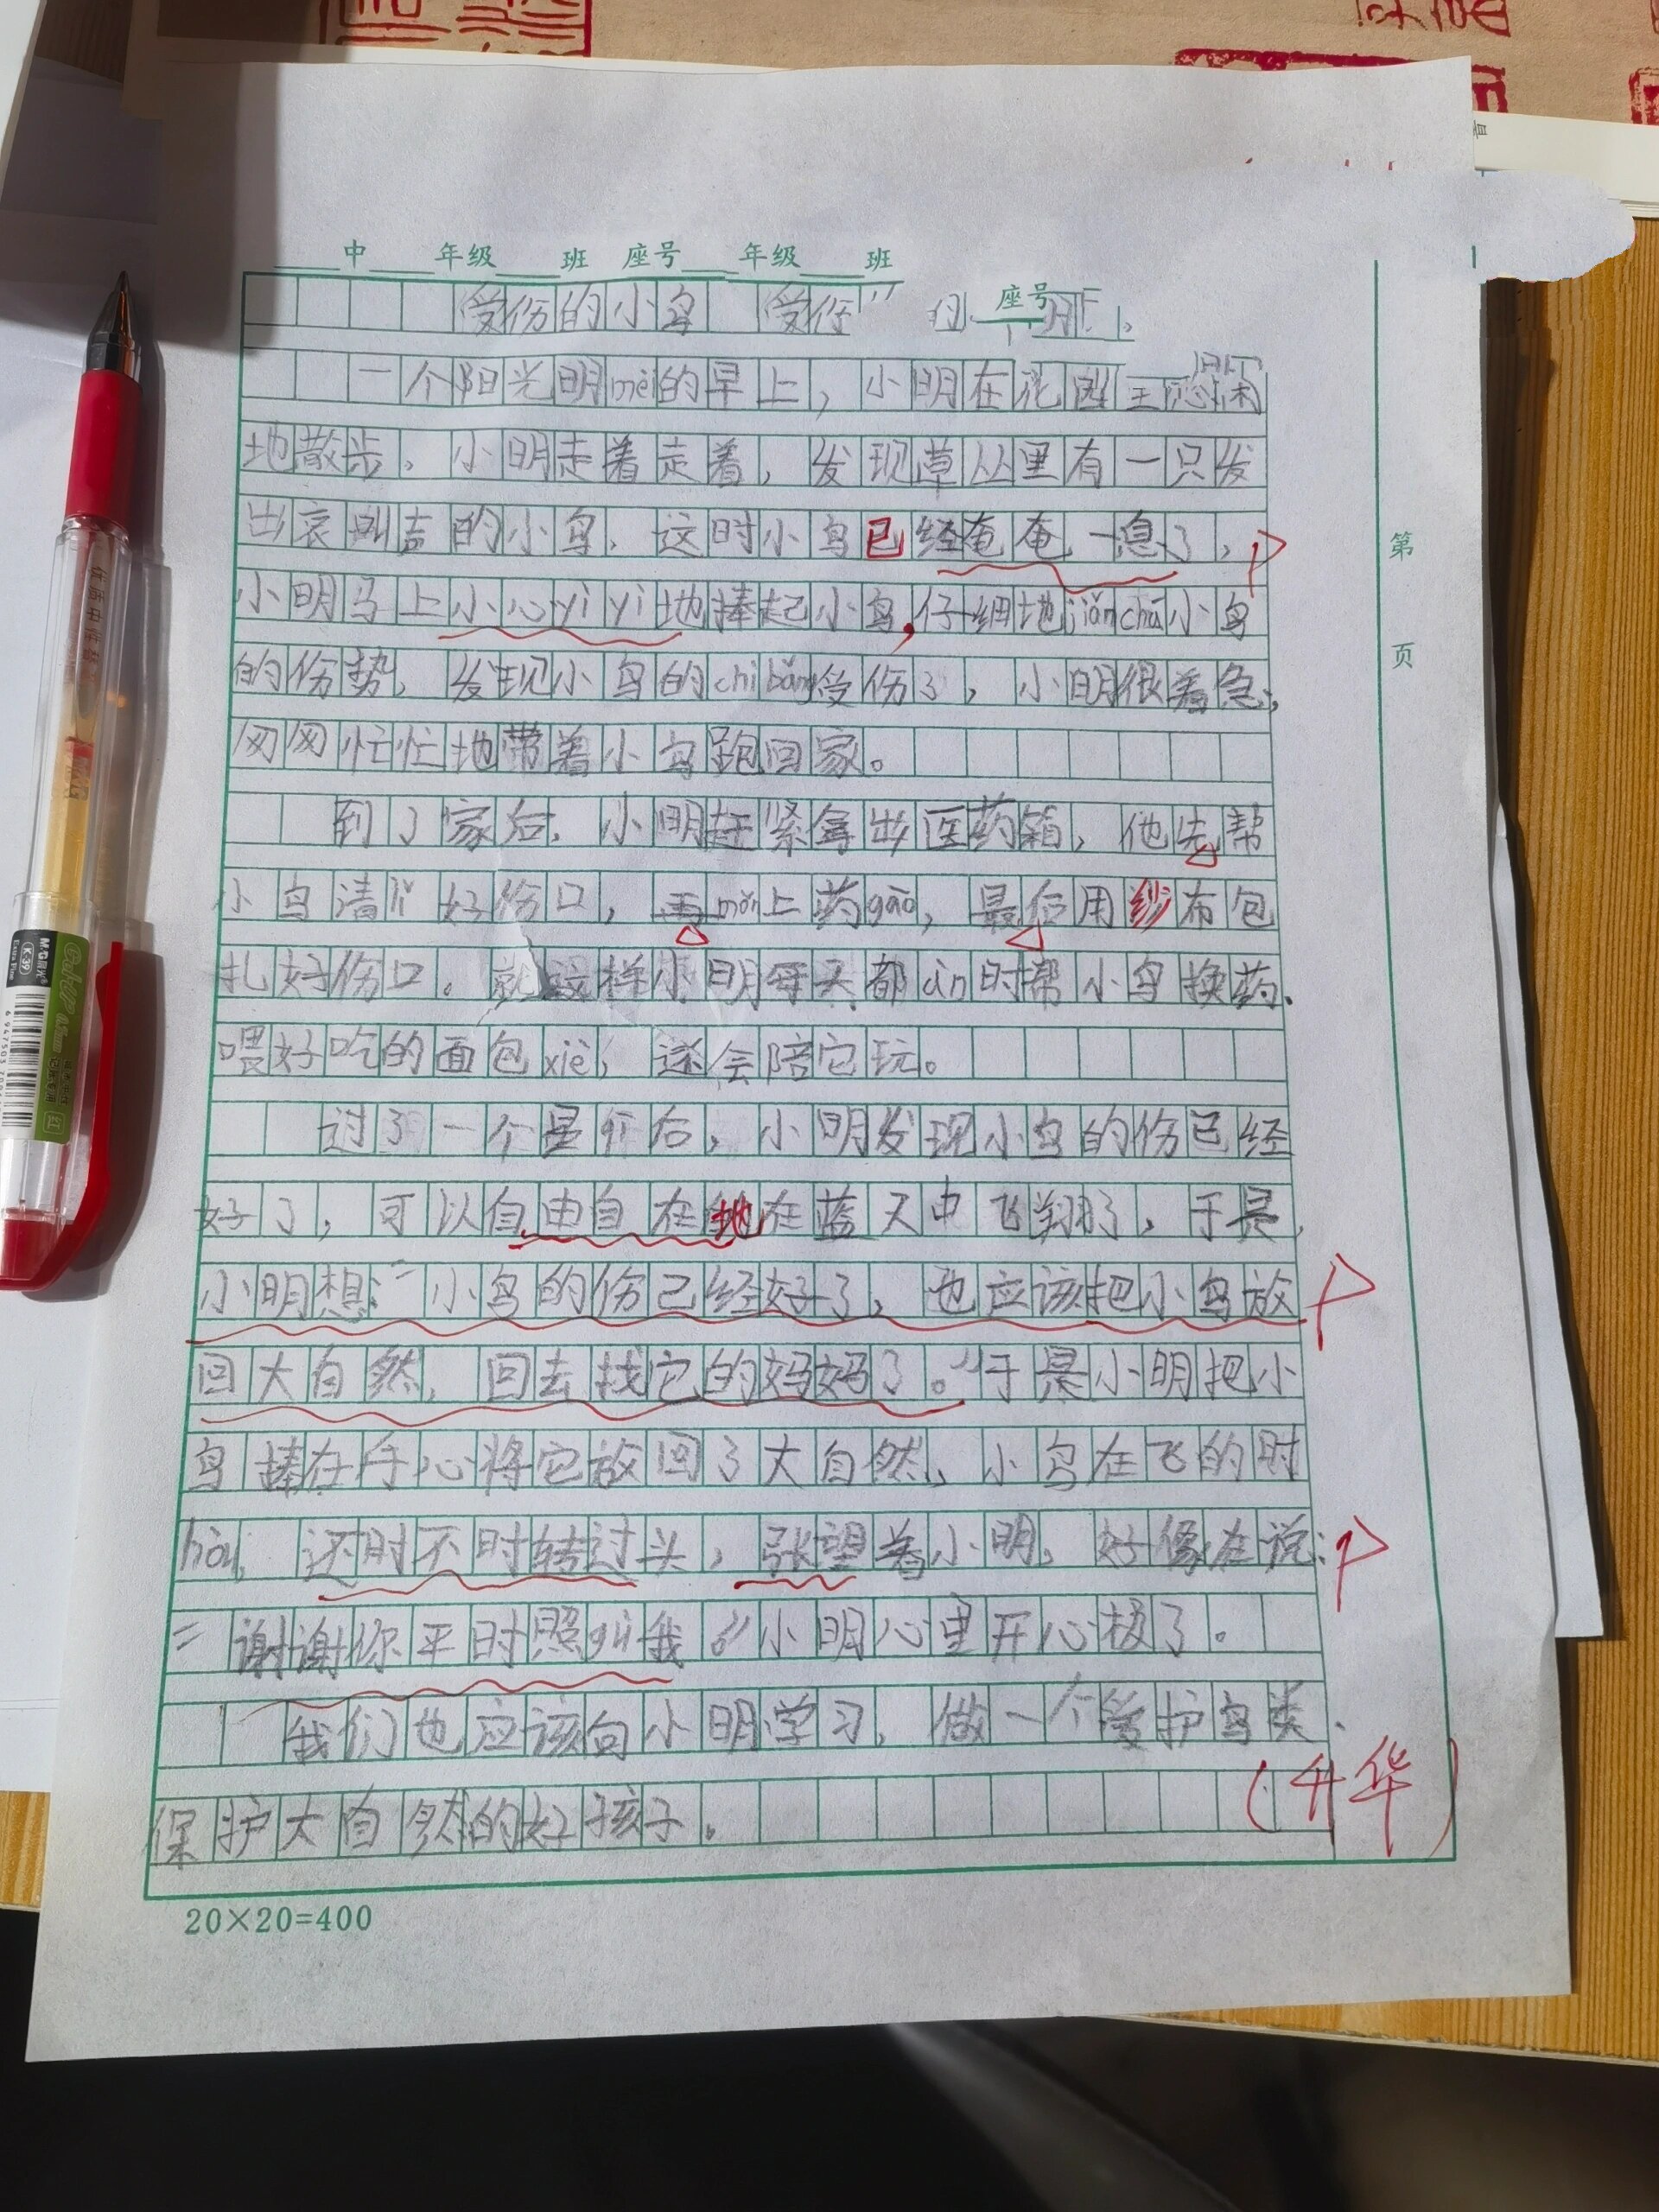 中 年级 班 座号 年级 班
座号
受伤的小鸟 受伤
一个阳光明mèi的早上，小明在花园
地散步，小明走着走着，发现草丛里有一只发
出哀叫声的小鸟，这时小鸟已经奄奄一息了，
小明马上小心yì yì地捧起小鸟，仔细地jiǎn chá小鸟
的伤势，发现小鸟的chì bǎng受伤了，小明很着急，
匆匆忙忙地带着小鸟跑回家。
到了家后，小明赶紧拿出医药箱，他先帮
小鸟清lǐ好伤口，再mǒ上药gāo，最后用纱布包
扎好伤口。就这样小明每天都àn时帮小鸟换药、
喂好吃的面包xiè，还会陪它玩。
过了一个星期后，小明发现小鸟的伤已经
好了，可以自由自在地在蓝天中飞翔了，于是，
小明想：“小鸟的伤已经好了，也应该把小鸟放
回大自然，回去找它的妈妈了。”于是小明把小
鸟捧在手心将它放回了大自然，小鸟在飞的时
hòu，还时不时转过头，张望着小明，好像在说：
“谢谢你平时照gù我。”小明心里开心极了。
我们也应该向小明学习，做一个爱护鸟类、
保护大自然的好孩子。
(升华)
第
页
20×20=400
优质中性替
M&G晨光
K-39
0.5mm
红